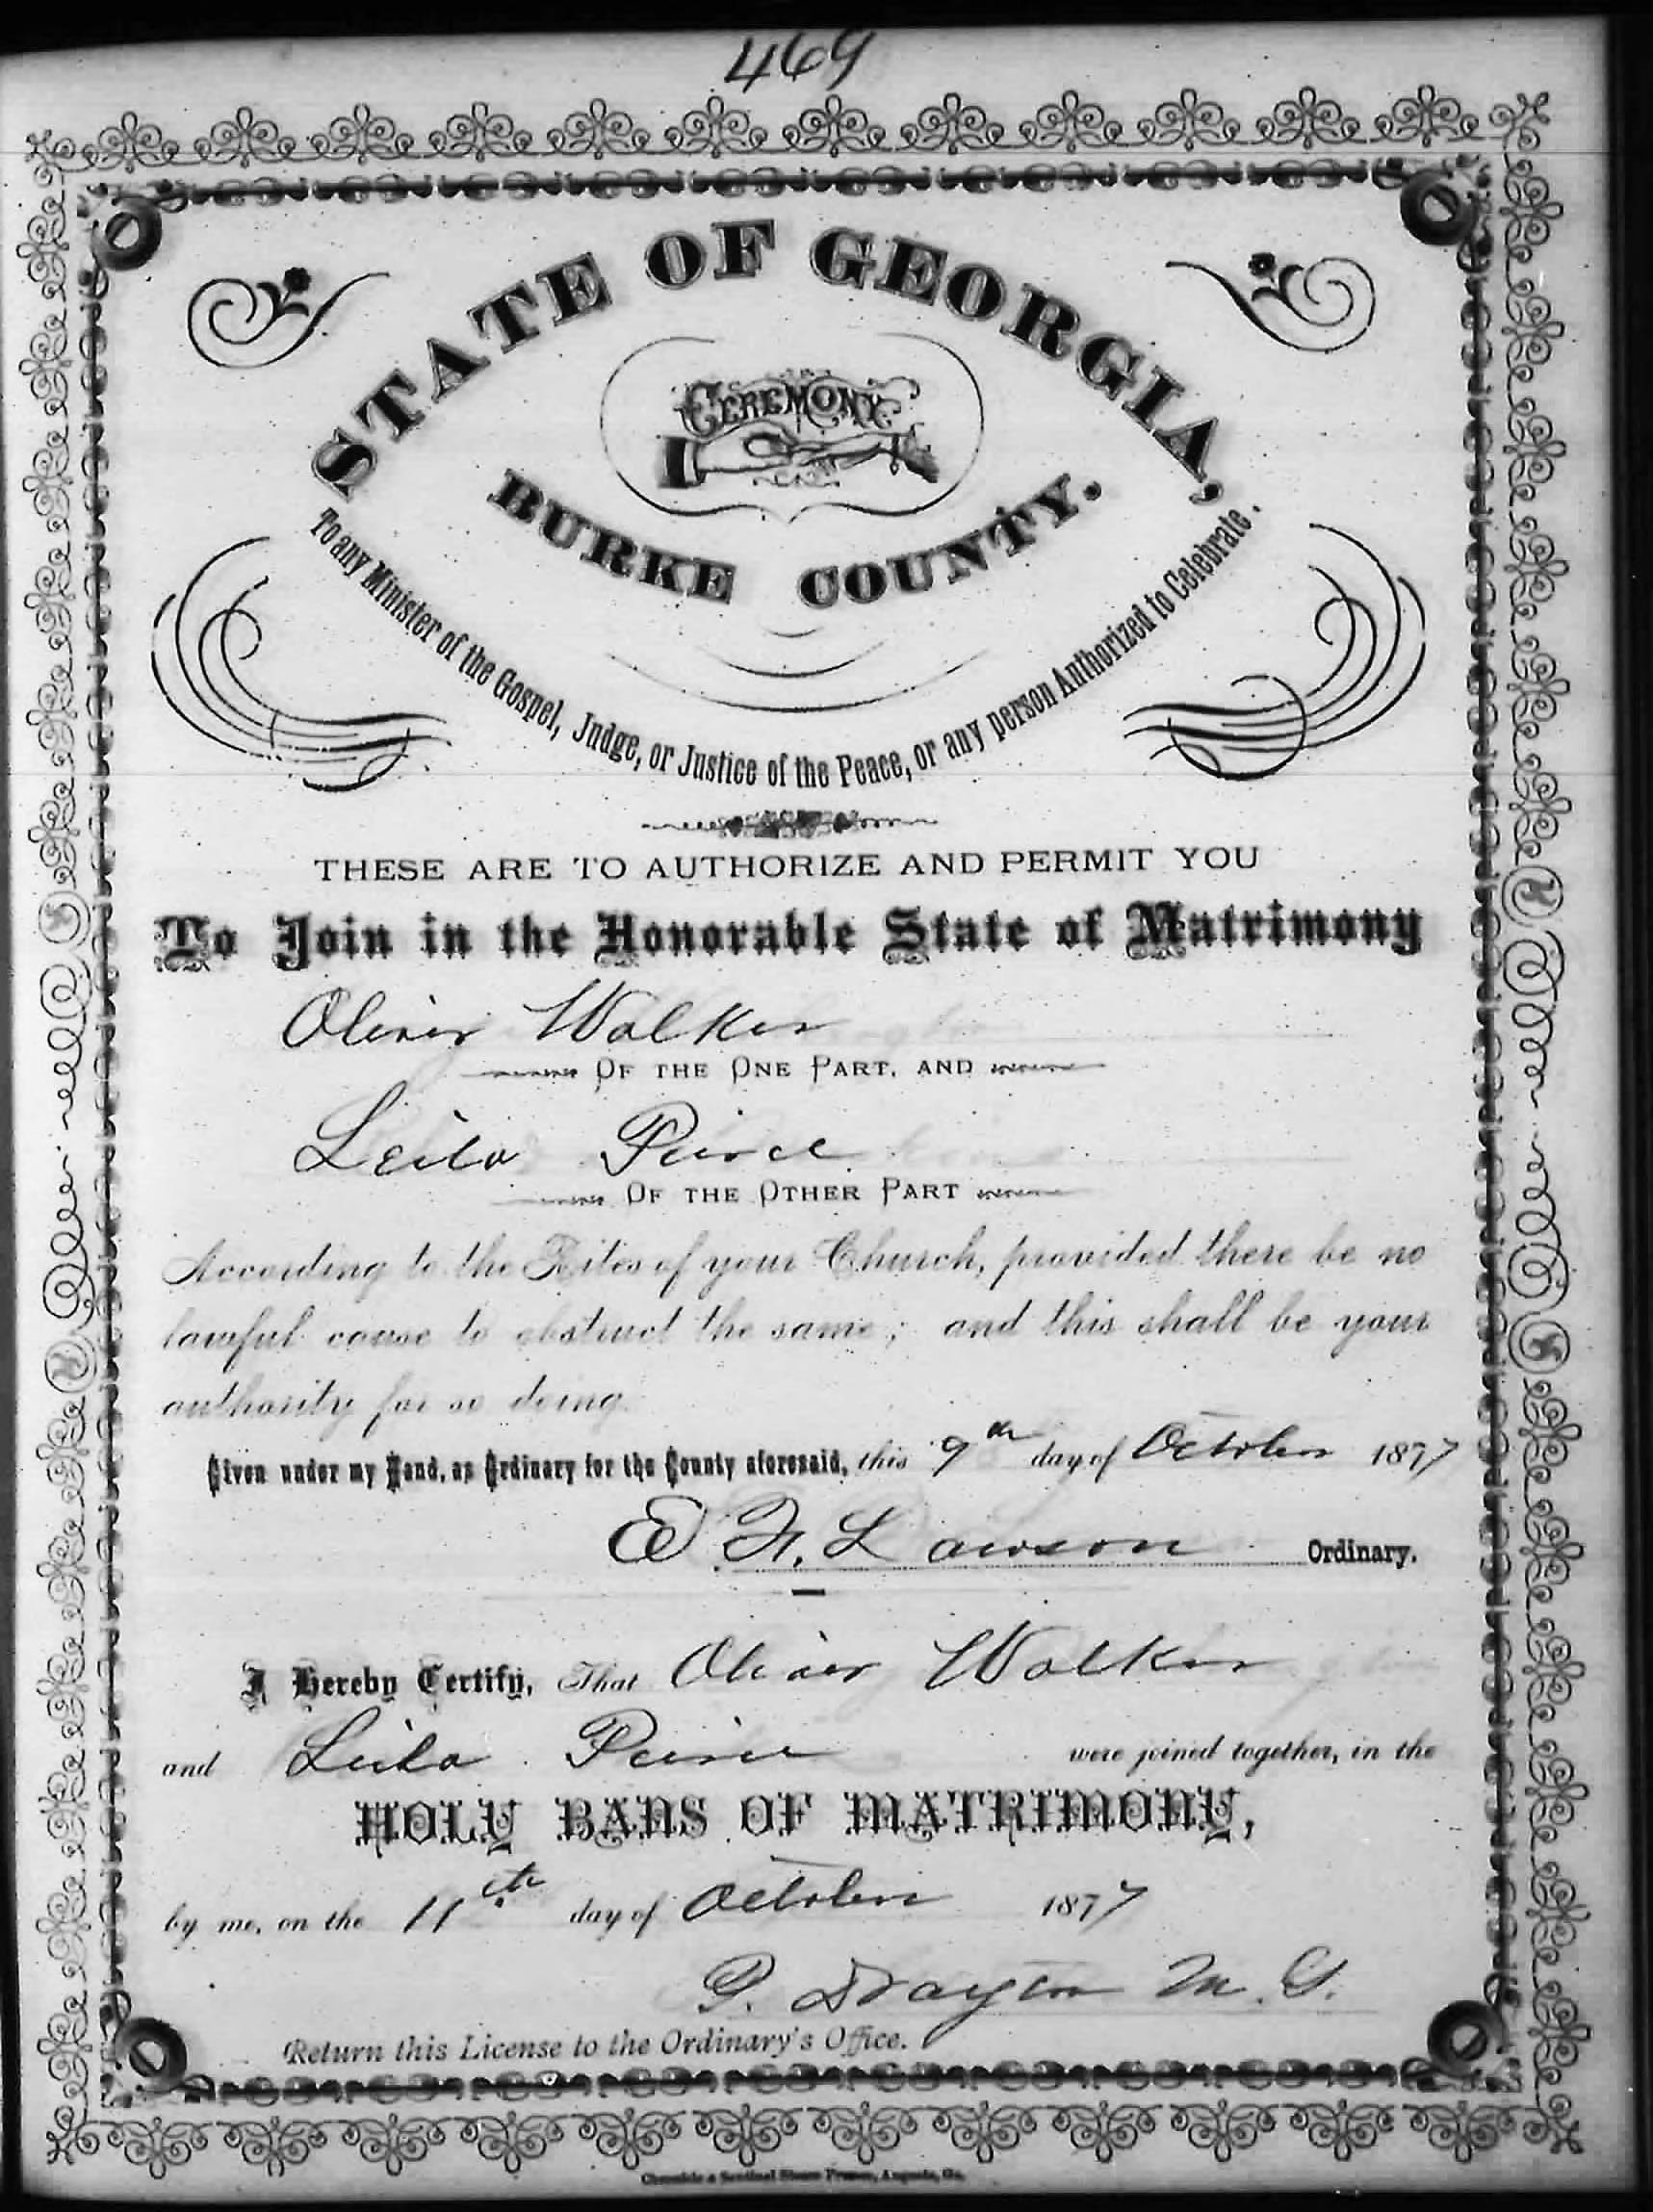 469
STATE OF GEORGIA,
CEREMONY
BURKE COUNTY.
To any Minister of the Gospel, Judge, or Justice of the Peace, or any person Authorized to Celebrate.
THESE ARE TO AUTHORIZE AND PERMIT YOU
To Join in the Honorable State of Matrimony
Oliver Walker
OF THE ONE PART, AND
Leila Peirce
OF THE OTHER PART
According to the Rites of your Church, provided there be no
lawful cause to obstruct the same; and this shall be your
authority for so doing.
Given under my Hand, as Ordinary for the County aforesaid, this 9th day of October 1877
E F. Lawson Ordinary.
I Hereby Certify, That Oliver Walker
and Leila Peirce were joined together, in the
HOLY BANS OF MATRIMONY,
by me, on the 11th day of October 1877
P. Drayton M. G.
Return this License to the Ordinary's Office.
Chronicle & Sentinel Steam Presses, Augusta, Ga.